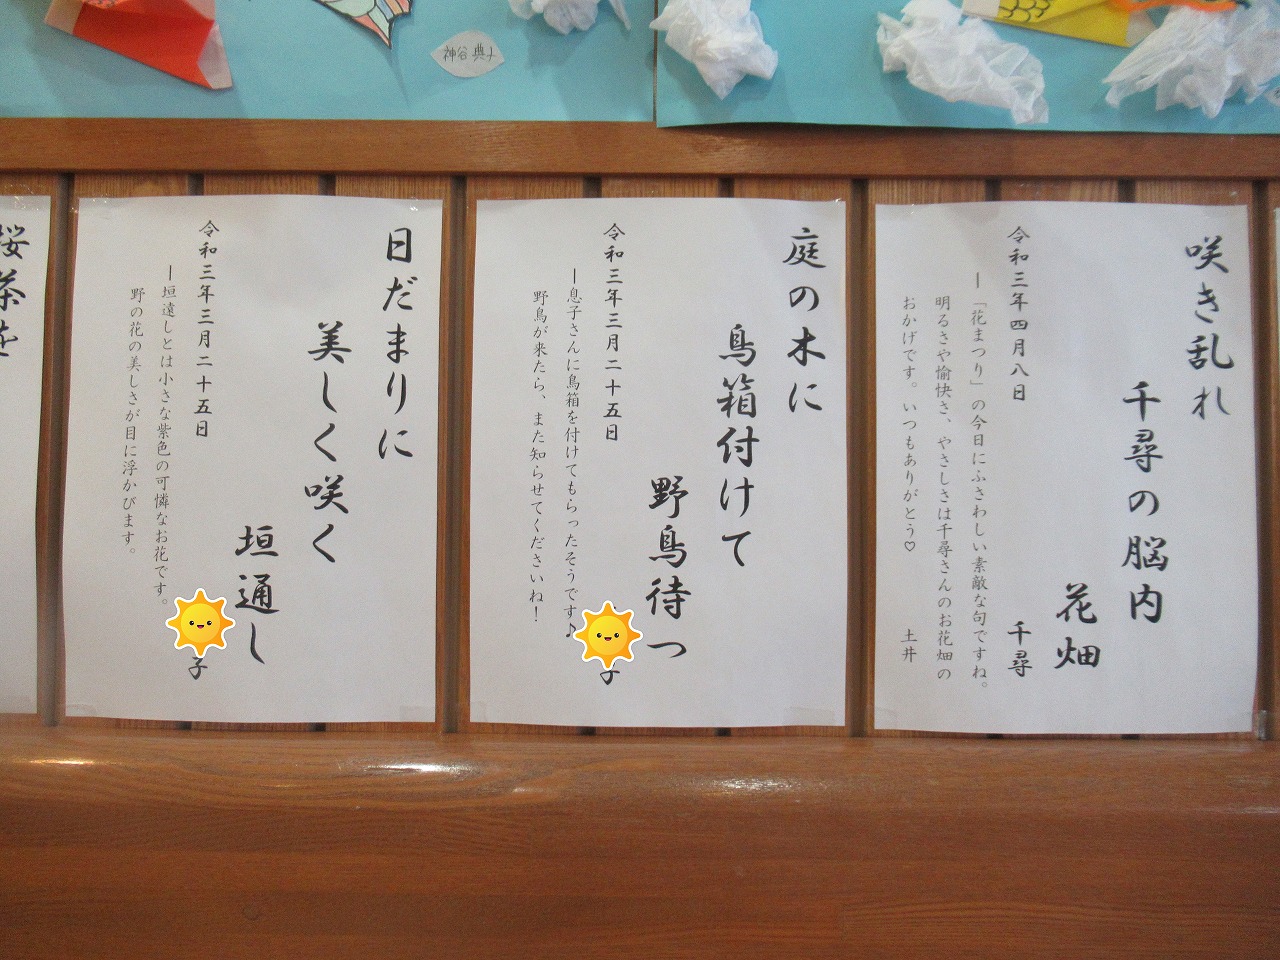 神谷 典子
咲き乱れ
千尋の脳内
花畑
令和三年四月八日
千尋
ー「花まつり」の今日にふさわしい素敵な句ですね。
明るさや愉快さ、やさしさは千尋さんのお花畑の
おかげです。いつもありがとう♡
土井
庭の木に
鳥箱付けて
野鳥待つ
令和三年三月二十五日
子
ー息子さんに鳥箱を付けてもらったそうです♪
野鳥が来たら、また知らせてくださいね！
日だまりに
美しく咲く
垣通し
令和三年三月二十五日
子
ー垣遠しとは小さな紫色の可憐なお花です。
野の花の美しさが目に浮かびます。
桜茶を